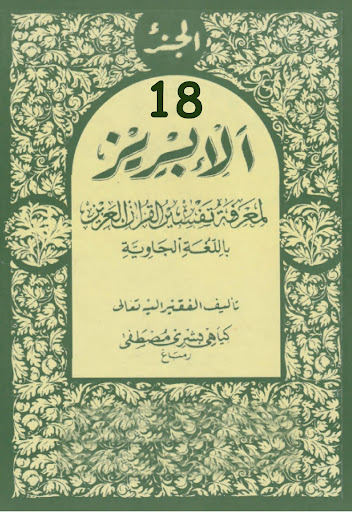 الجزء
18
الإبريز
لمعرفة تفسير القرآن العزيز
باللغة الجاوية
تأليف الفقير اليه تعالى
كياهي بشري مصطفى
رمباغ